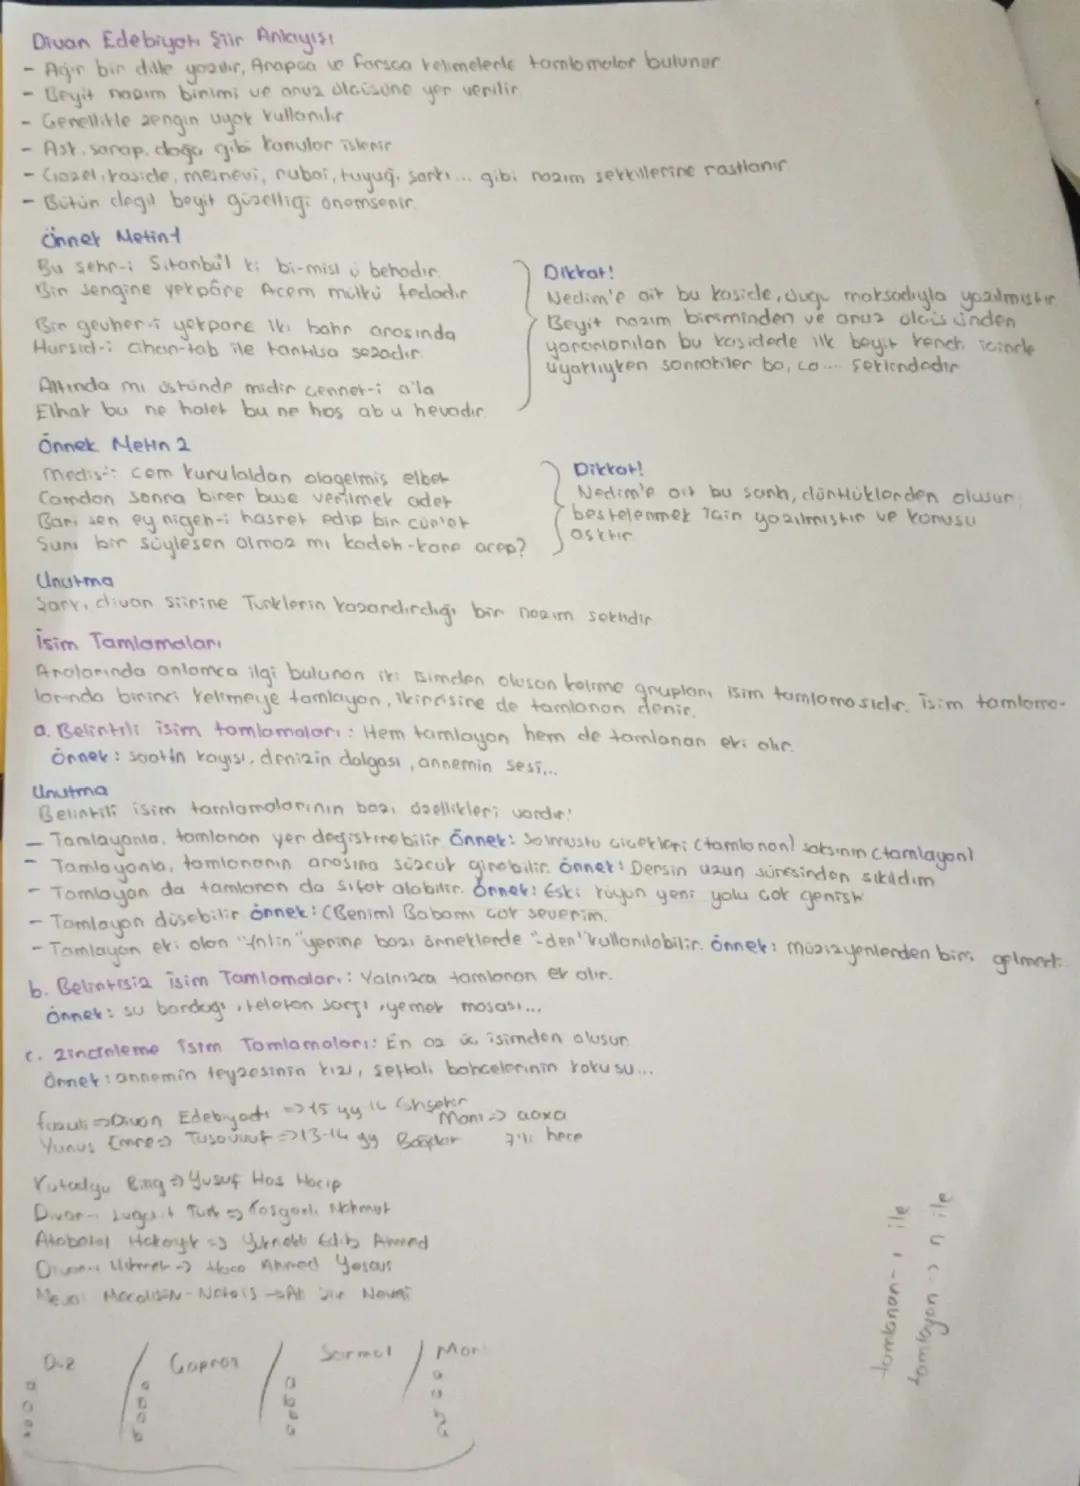 Divan Edebiyatı Şiir Anlayışı
- Ağır bir dille yazılır, Arapça ve Farsça kelimelerle tamlamalar bulunur
- Beyit nazım birimi ve aruz ölçüsüne yer verilir
- Genellikle zengin uyak kullanılır
- Aşk, şarap, doğa gibi konular işlenir
- Gazel, kaside, mesnevi, rubai, tuyuğ, şarkı... gibi nazım şekillerine rastlanır
- Bütün değil beyit güzelliği önemsenir.
Örnek Metin 1
Bu şehr-i Sitanbul ki bi-misl ü behadır.
Bir sengine yekpâre Acem mülkü fedadır
Bir gevher-i yekpare iki bahr arasında
Hurşid-i cihan-tab ile tartılsa sezadır.
Altında mı üstünde midir cennet-i a'la
Elhak bu ne halet bu ne hoş ab u hevadır
Dikkat!
Nedim'e ait bu kaside, övgü maksadıyla yazılmıştır
Beyit nazım biriminden ve aruz ölçüsünden
yararlanılan bu kasidede ilk beyit kendi içinde
uyaklıyken sonrakiler ba, ca... şeklindedir
Örnek Metin 2
Meclis-i cem kurulaldan olagelmiş elbet
Camdan sonra birer buse verilmek adet
Bari sen ey nigeh-i hasret edip bir cür'et
Sunu bir söylesen olmaz mı kadeh-kare acep?
Dikkat!
Nedim'e ait bu şarkı, dörtlüklerden oluşur,
bestelenmek için yazılmıştır ve konusu
aşktır
Unutma
Şarkı, divan şiirine Türklerin kazandırdığı bir nazım şeklidir
İsim Tamlamaları
Aralarında anlamca ilgi bulunan iki isimden oluşan kelime grupları isim tamlamasıdır. İsim tamlama-
larında birinci kelimeye tamlayan, ikincisine de tamlanan denir.
a. Belirtili isim tamlamaları: Hem tamlayan hem de tamlanan eki alır.
Örnek: saatin kayışı, denizin dalgası, annemin sesi,...
Unutma
Belirtili isim tamlamalarının bazı özellikleri vardır:
- Tamlayanla, tamlanan yer değiştirebilir. Örnek: Solmuştu çiçekleri (tamlanan) saksının (tamlayan)
- Tamlayanla, tamlananın arasına sözcük girebilir. Örnek: Dersin uzun süresinden sıkıldım
- Tamlayan da tamlanan da sıfat alabilir. Örnek: Eski köyün yeni yolu çok genişti
- Tamlayan düşebilir Örnek: (Benim) Babamı çok severim.
- Tamlayan eki olan "ın/in" yerine bazı örneklerde "-den" kullanılabilir. Örnek: Müzisyenlerden biri gelmedi.
b. Belirtisiz İsim Tamlamaları: Yalnızca tamlanan ek alır.
Örnek: su bardağı, telefon şarjı, yemek masası...
c. Zincirleme İsim Tamlamaları: En az üç isimden oluşur.
Örnek: annemin teyzesinin kızı, şeftali bahçelerinin kokusu...
Fuzuli => Divan Edebiyatı => 15 yy 16
Mani => aaxa
Yunus Emre => Tasavvuf => 13-14 yy
7'li hece
Kutadgu Bilig => Yusuf Has Hacip
Divan-ı Lugati't Türk => Kaşgarlı Mahmut
Atabetül Hakayık => Yükneki Edib Ahmed
Divan-ı Hikmet -> Hoca Ahmed Yesevi
Mecalisün-Nefais -> Ali Şir Nevai
Düz / Çapraz / Sarmal / Mani
tamlanan - ı ile
tamlayan -> n ile